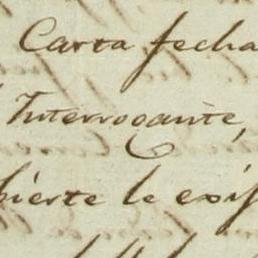 Carta fecha
Interrogante,
bierte le exis